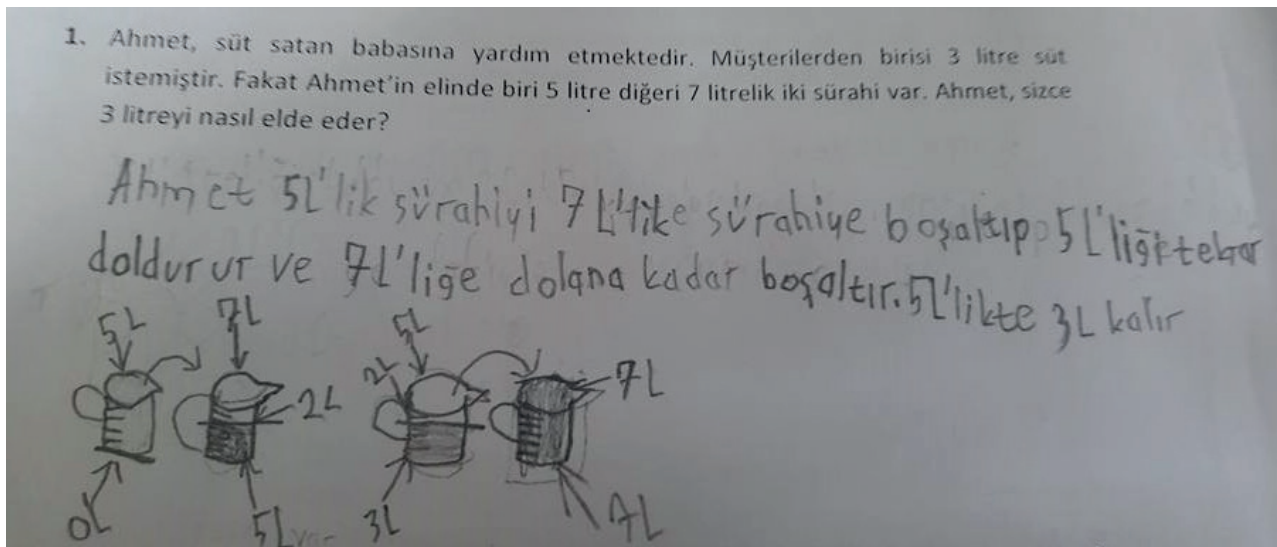 1. Ahmet, süt satan babasına yardım etmektedir. Müşterilerden birisi 3 litre süt
istemiştir. Fakat Ahmet'in elinde biri 5 litre diğeri 7 litrelik iki sürahi var. Ahmet, sizce
3 litreyi nasıl elde eder?
Ahmet 5L'lik sürahiyi 7 L'like sürahiye boşaltıp 5L'liği tekrar
doldurur ve 7L'liğe dolana kadar boşaltır. 5L'likte 3L kalır
5L 7L 5L
2L 2L 7L
0L 5L var 3L 7L